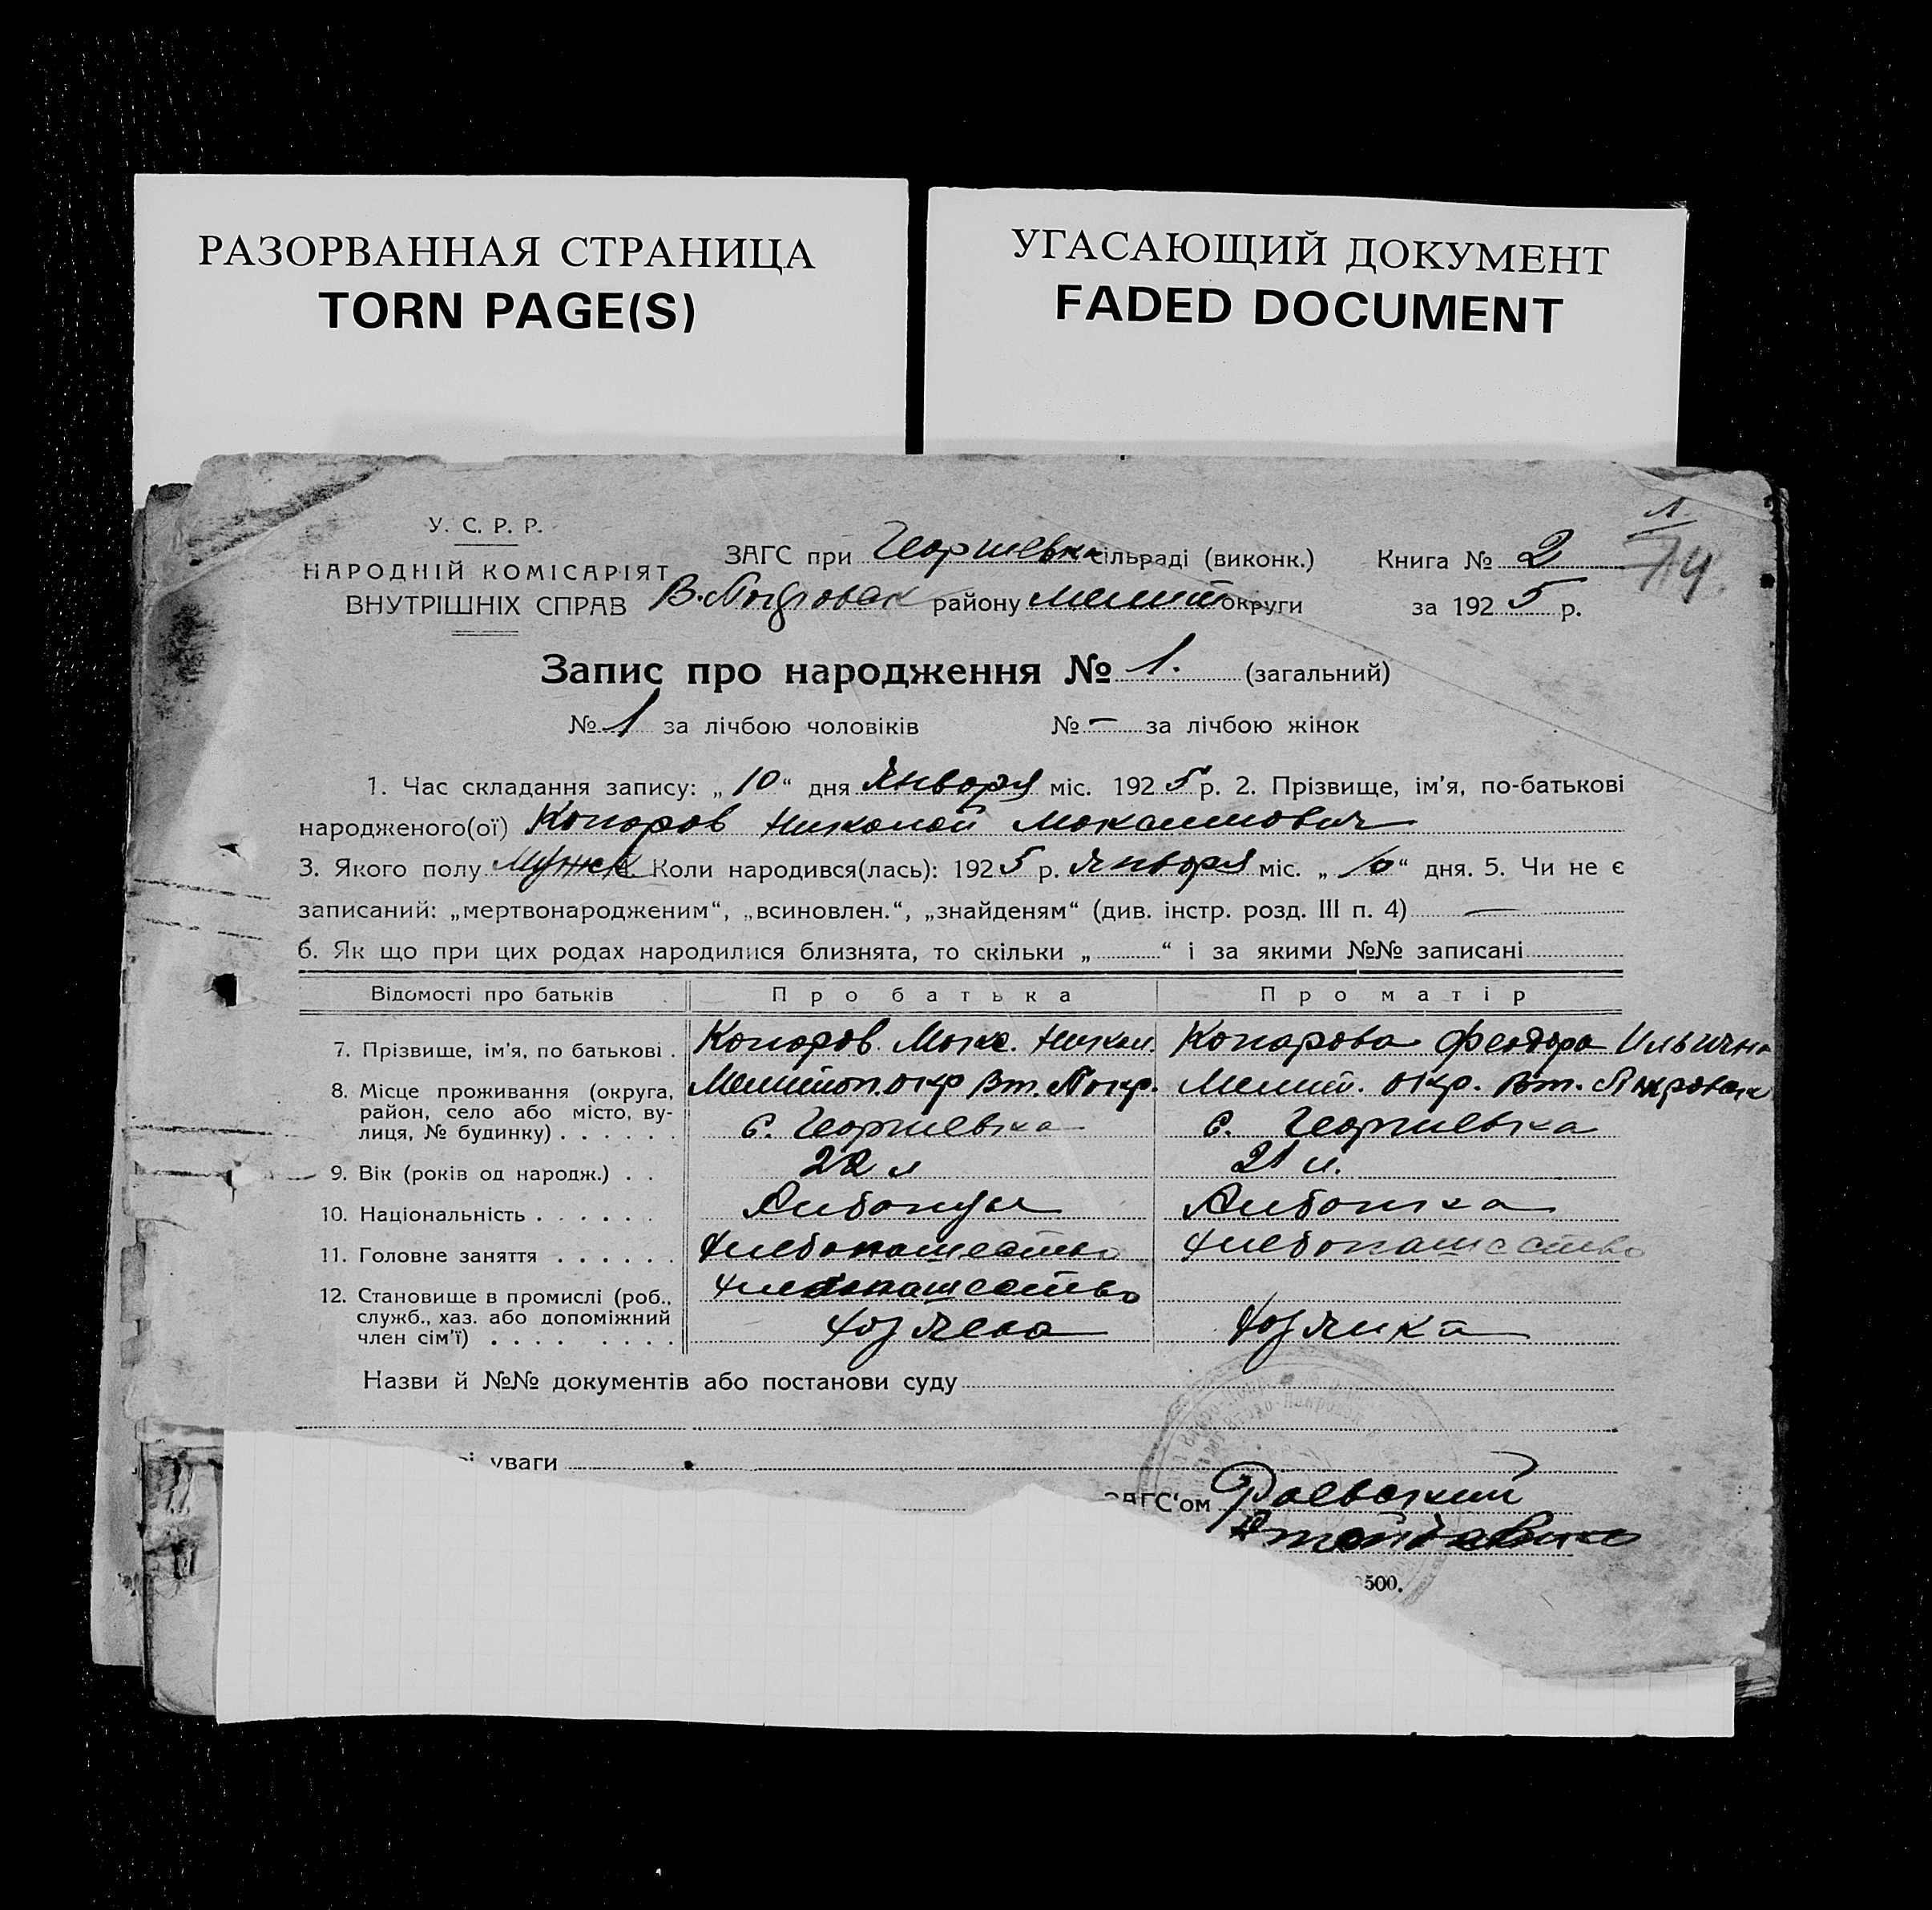 РАЗОРВАННАЯ СТРАНИЦА
TORN PAGE(S)
УГАСАЮЩИЙ ДОКУМЕНТ
FADED DOCUMENT
У. С. Р. Р.
НАРОДНІЙ КОМІСАРІЯТ
ВНУТРІШНІХ СПРАВ
1
74
ЗАГС при Георгиевка сільраді (виконк.) Книга № 2
району Мелит округи за 1925 р.
Запис про народження № 1. (загальний)
№ 1 за лічбою чоловіків № — за лічбою жінок
1. Час складання запису: „ 10 “ дня Января міс. 1925 р. 2. Прізвище, ім'я, по-батькові
народженого(ої) Копоров Николай Максимович
3. Якого полу Мужск 4. Коли народився(лась): 1925 р. Января міс. „ 10 “ дня. 5. Чи не є
записаний: „мертвонародженим“, „всиновлен.“, „знайденям“ (див. інстр. розд. III п. 4) —
6. Як що при цих родах народилися близнята, то скільки „ “ і за якими №№ записані
Відомості про батьків Про батька Про матір
7. Прізвище, ім'я, по батькові . Копоров Макс. Никол. Копорова Феодора Ильична
8. Місце проживання (округа, район, село або місто, вулиця, № будинку) . . . . . . Мелитоп. окр Вт. Покр. Мелит. окр. Вт. Покровск
с. Георгиевка с. Георгиевка
9. Вік (років од народж.) . . 22 л 21 л.
10. Національність . . . . . . Албанцы Албанка
11. Головне заняття . . . . . . Хлебопашество Хлебопашество
12. Становище в промислі (роб., служб., хаз. або допоміжний член сім'ї) . . . . . . . . Хлебопашество
Хозяена Хозяика
Назви й №№ документів або постанови суду
уваги
ЗАГС'ом Раевский
500.